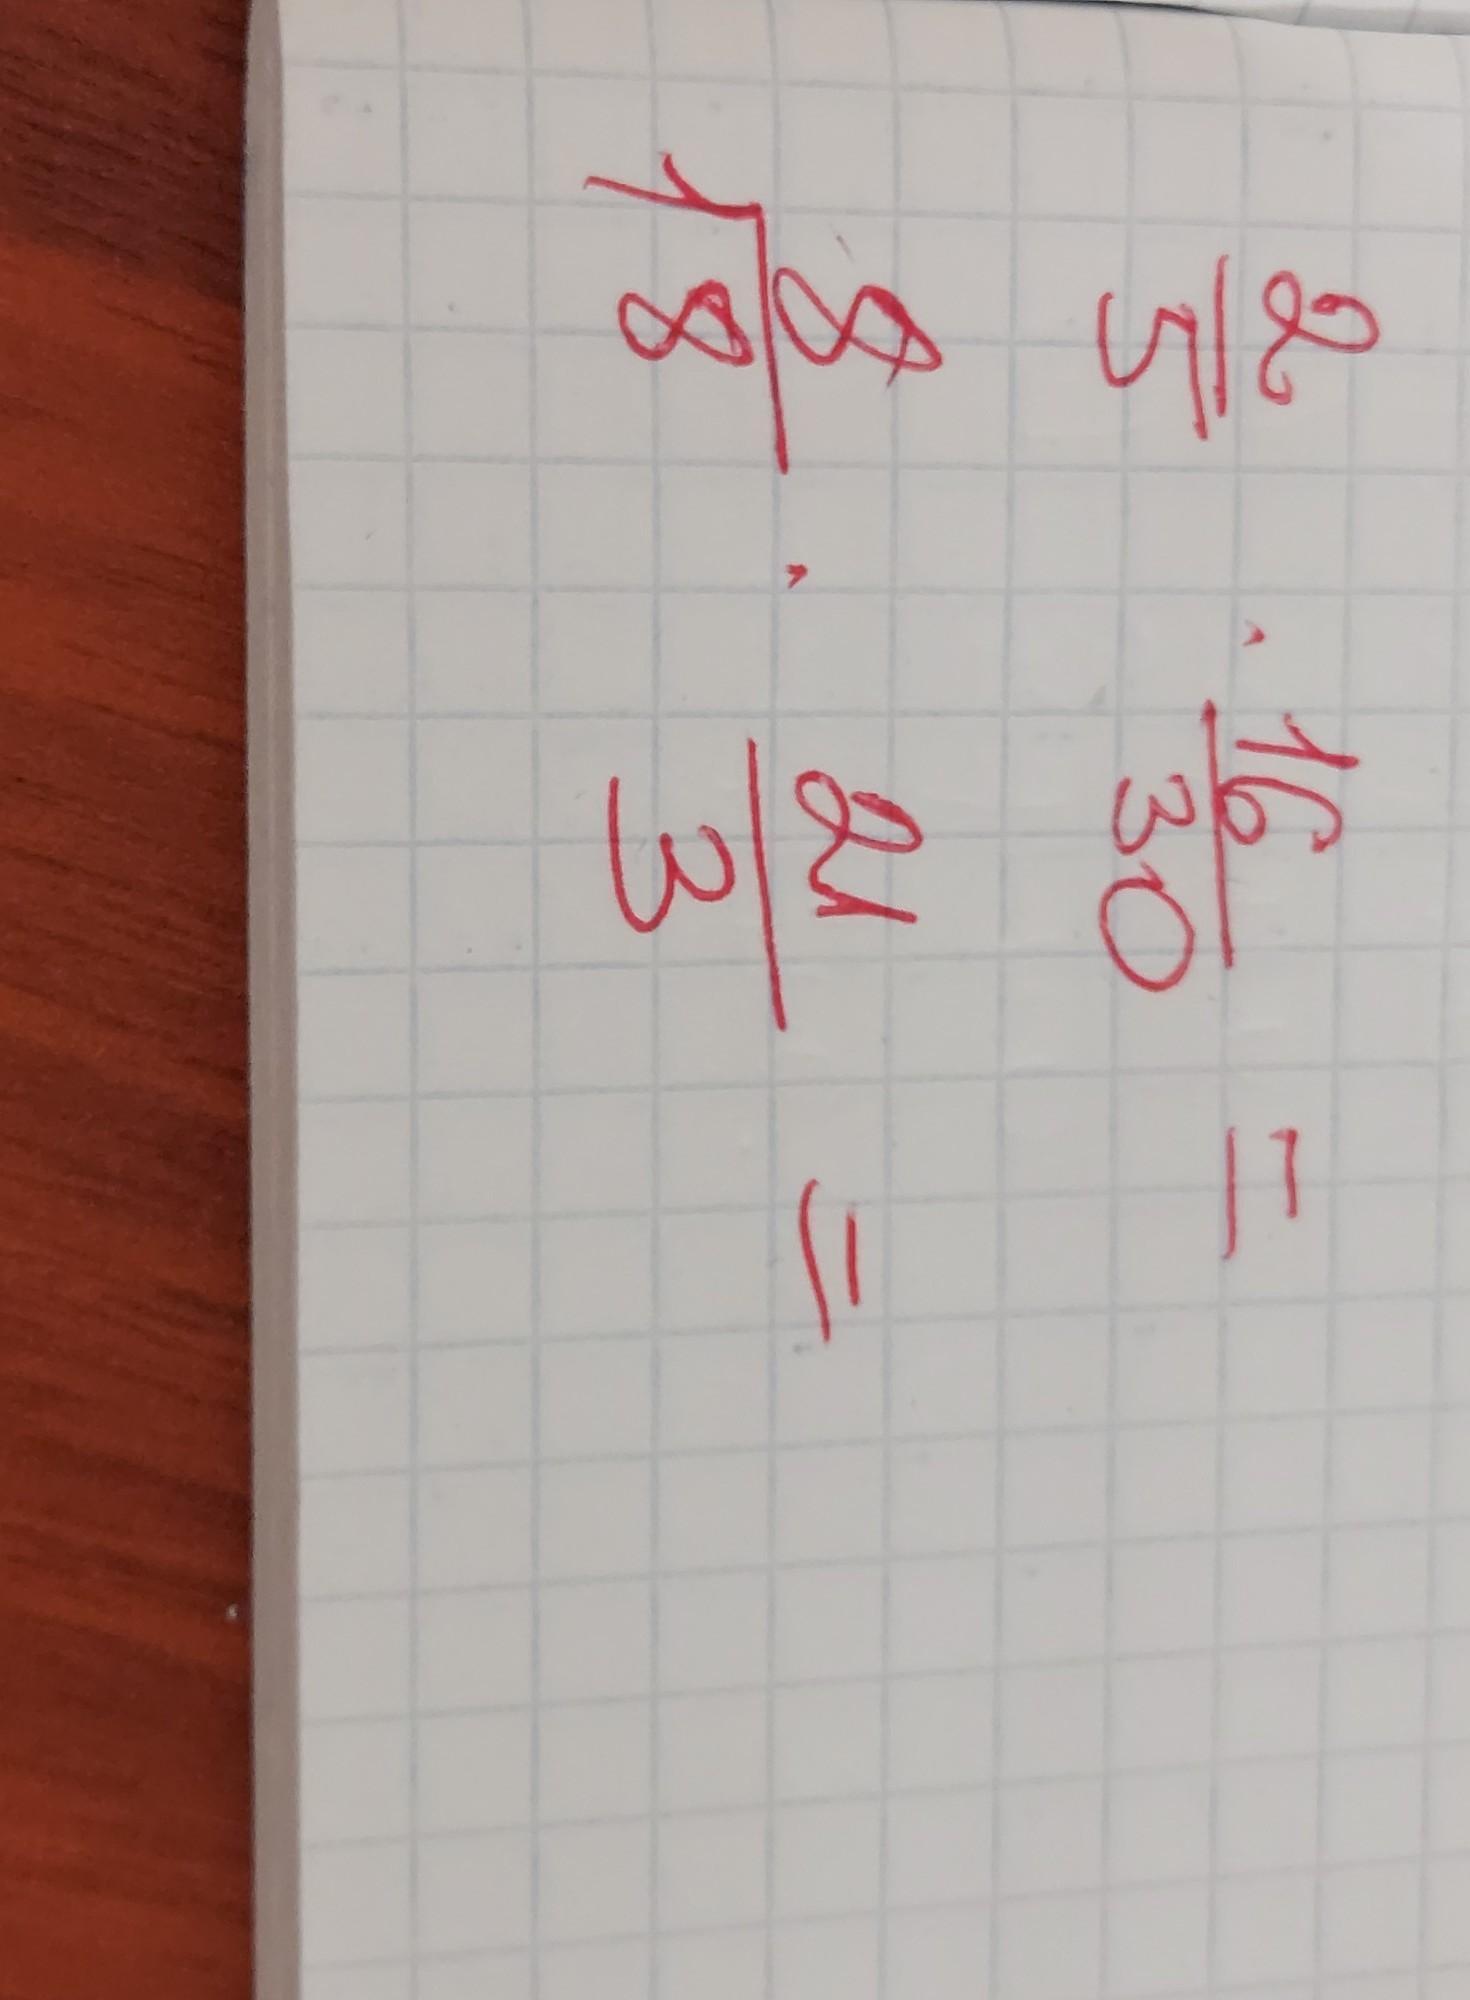 2/5 · 16/30 =
8/18 · 21/3 =